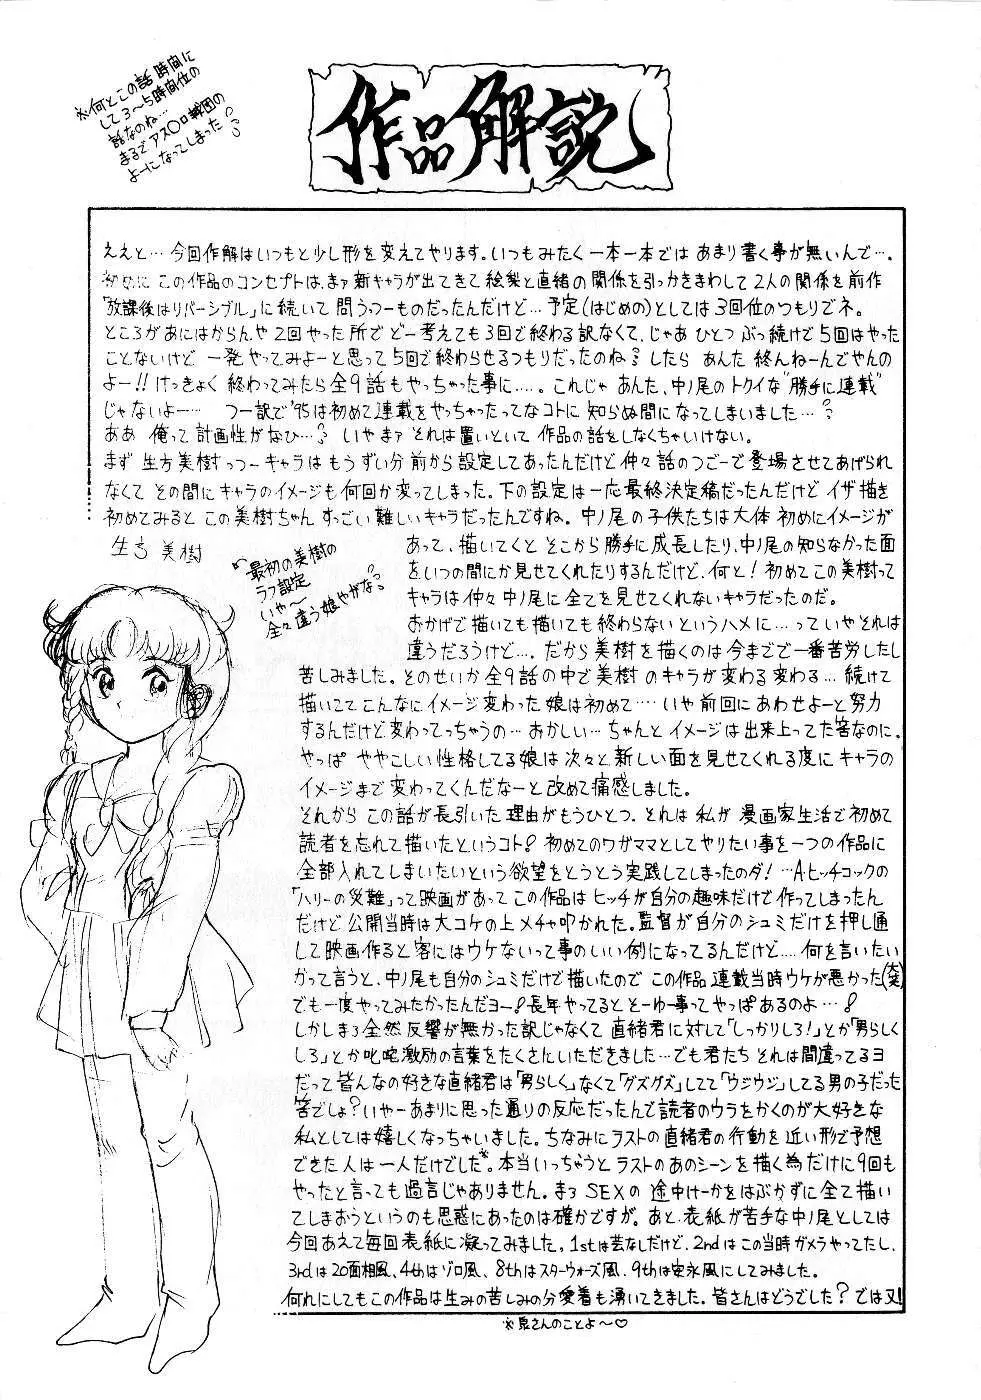 作品解説
※何とこの話 時間に
して3〜5時間位の
話なのね…
まるでアス〇ロ戦団の
よーになってしまった?
ええと…今回作解はいつもと少し形を変えてやります。いつもみたく一本一本では あまり書く事が無いんで…。
初めに この作品のコンセプトは、まァ新キャラが出てきて絵梨と直緒の関係を引っかきまわして2人の関係を前作
「放課後はリバーシブル」に続いて 問うっつーものだったんだけど…予定(はじめの)としては3回位のつもりでネ。
ところがあにはからんや2回やった所でどー考えても3回で終わる訳なくて、じゃあ ひとつ ぶっ続けで5回はやった
ことないけど 一発 やってみよーと思って5回で終わらせるつもりだったのね?したら あんた 終んねーんでやんの
よー!!けっきょく 終わってみたら全9話もやっちゃった事に…。これじゃ あんた、中ノ尾のトクイな"勝手に連載"
じゃないよー… つー訳で'95は初めて連載をやっちゃったってなコトに 知らぬ間になってしまいました…?
ああ 俺って計画性がなひ…?いやまァ それは置いといて 作品の話をしなくちゃいけない。
まず 生方美樹っつーキャラはもうずい分前から設定してあったんだけど仲々話のつごーで登場させてあげられ
なくて その間にキャラのイメージも何回か変ってしまった。下の設定は一応最終決定稿だったんだけど イザ描き
初めてみると この美樹ちゃん すっごい難しいキャラだったんですね。中ノ尾の子供たちは大体 初めにイメージが
あって、描いてくと そこから勝手に成長したり、中ノ尾の知らなかった面
をいつの間にか見せてくれたりするんだけど、何と!初めてこの美樹って
キャラは仲々 中ノ尾に全てを見せてくれないキャラだったのだ。
おかげで描いても描いても終わらないというハメに…って いや それは
違うだろうけど…。だから美樹を描くのは今までで一番苦労したし
苦しみました。そのせいか全9話の中で美樹 のキャラが変わる変わる…続けて
描いててこんなにイメージ変わった娘は初めて…いや前回にあわせよーと努力
するんだけど変わってっちゃうの…おかしい…ちゃんとイメージは出来上ってた筈なのに。
やっぱ ややこしい性格してる娘は次々と新しい面を見せてくれる度にキャラの
イメージまで変わってくんだなーと改めて痛感しました。
それから この話が長引いた理由がもうひとつ。それは 私が 漫画家生活で初めて
読者を忘れて描いたというコト?初めてのワガママとしてやりたい事を一つの作品に
全部入れてしまいたいという欲望をとうとう実践してしまったのダ!…A.ヒッチコックの
「ハリーの災難」って映画があって この作品は ヒッチが自分の趣味だけで作ってしまったん
だけど 公開当時は大コケの上 メチャ叩かれた。監督が自分のシュミだけを押し通
して映画作ると客にはウケないって事のいい例になってるんだけど…何を言いたい
かって言うと、中ノ尾も自分のシュミだけで描いたので この作品連載当時ウケが悪かった(大笑)
でも一度やってみたかったんだヨー!長年やってると とーゆー事ってやっぱあるのよ…!
しかしまァ全然反響が無かった訳じゃなくて 直緒君に対して「しっかりしろ!」とか「男らしく
しろ」とか叱咤激励の言葉をたくさんいただきました…でも君たち それは間違ってるヨ
だって皆んなの好きな直緒君は「男らしく」なくて「グズグズ」してて「ウジウジ」してる男の子だった
筈でしょ?いやーあまりに思った通りの反応だったんで読者のウラをかくのが大好きな
私としては嬉しくなっちゃいました。ちなみにラストの直緒君の行動を近い形で予想
できた人は一人だけでした※。本当いっちゃうと ラストのあのシーンを描く為だけに9回も
やったと言っても過言じゃありません。まァSEXの 途中けーかをはぶかずに全て描い
てしまおうというのも思惑にあったのは確かですが。あと、表紙が苦手な中ノ尾としては
今回あえて毎回表紙に凝ってみました。1stは芸なしだけど、2ndはこの当時ガメラやってたし、
3rdは20面相風、4thはゾロ風、8thはスターウォーズ風、9thは安永風にしてみました。
何れにしてもこの作品は生みの苦しみの分愛着も湧いてきました。皆さんはどうでした?では又!
生方美樹
最初の美樹の
ラフ設定
いやー
全々違う娘やがな?
※泉さんのことよ〜♡